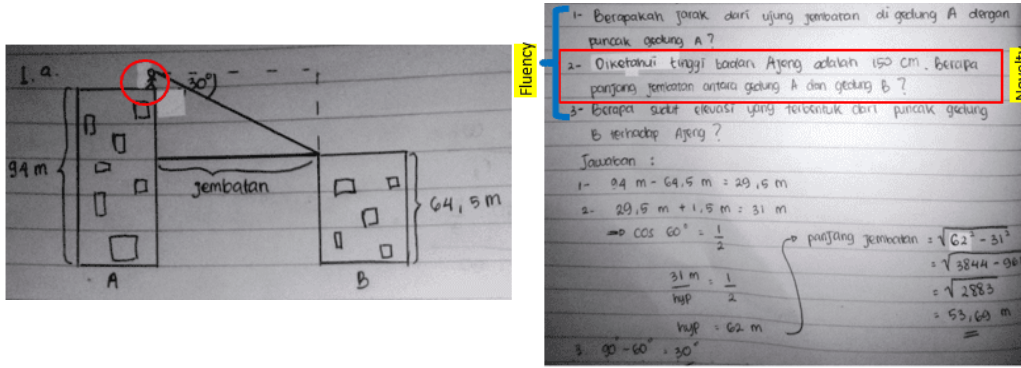 1. a.
30°
94 m
jembatan
64,5 m
A
B
Fluency
1- Berapakah jarak dari ujung jembatan di gedung A dengan
puncak gedung A ?
2- Diketahui tinggi badan Ajeng adalah 150 cm. Berapa
panjang jembatan antara gedung A dan gedung B ?
3- Berapa sudut elevasi yang terbentuk dari puncak gedung
B terhadap Ajeng ?
Novelty
Jawaban :
1- 94 m - 64,5 m = 29,5 m
2- 29,5 m + 1,5 m = 31 m
⇒ cos 60° = 1/2
31 m / hyp = 1/2
hyp = 62 m
→ panjang jembatan = √62² - 31²
= √3844 - 961
= √2883
= 53,69 m
3. 90° - 60° = 30°